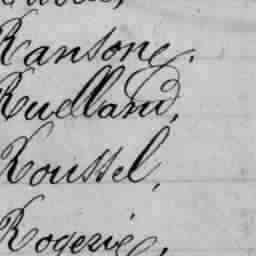 Ransone.
Ruelland,
Roussel,
Rogerie,